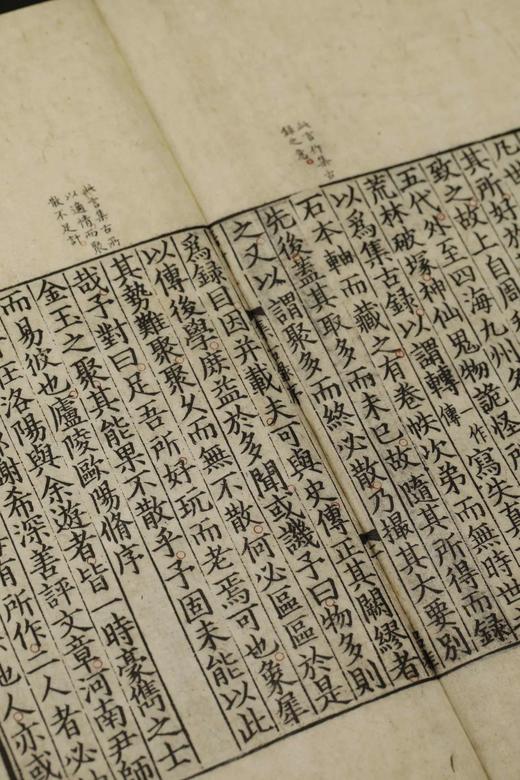 此言作集古
錄之意
凡世
其所好於
致之故上自周
五代外至四海九州
荒林破塚神仙鬼物詭怪所
以爲集古錄以謂轉一作傳寫失真
石本軸而藏之有卷帙次弟而無時世
先後蓋其取多而未已故隨其所得而錄
之又以謂聚多而終必散乃撮其大要別
此言集古所
以適情而聚
散不足計
爲錄目因并載夫可與史傳正其闕繆者
以傳後學庶益於多聞或譏予曰物多則
其勢難聚聚久而無不散何必區區於是
哉予對曰足吾所好玩而老焉可也象犀
金玉之聚其能果不散乎予固未能以此
而易彼也廬陵歐陽脩序
在洛陽與余遊者皆一時豪雋之士
謝希深善評文章河南尹師
有所作二人者必
也人亦或